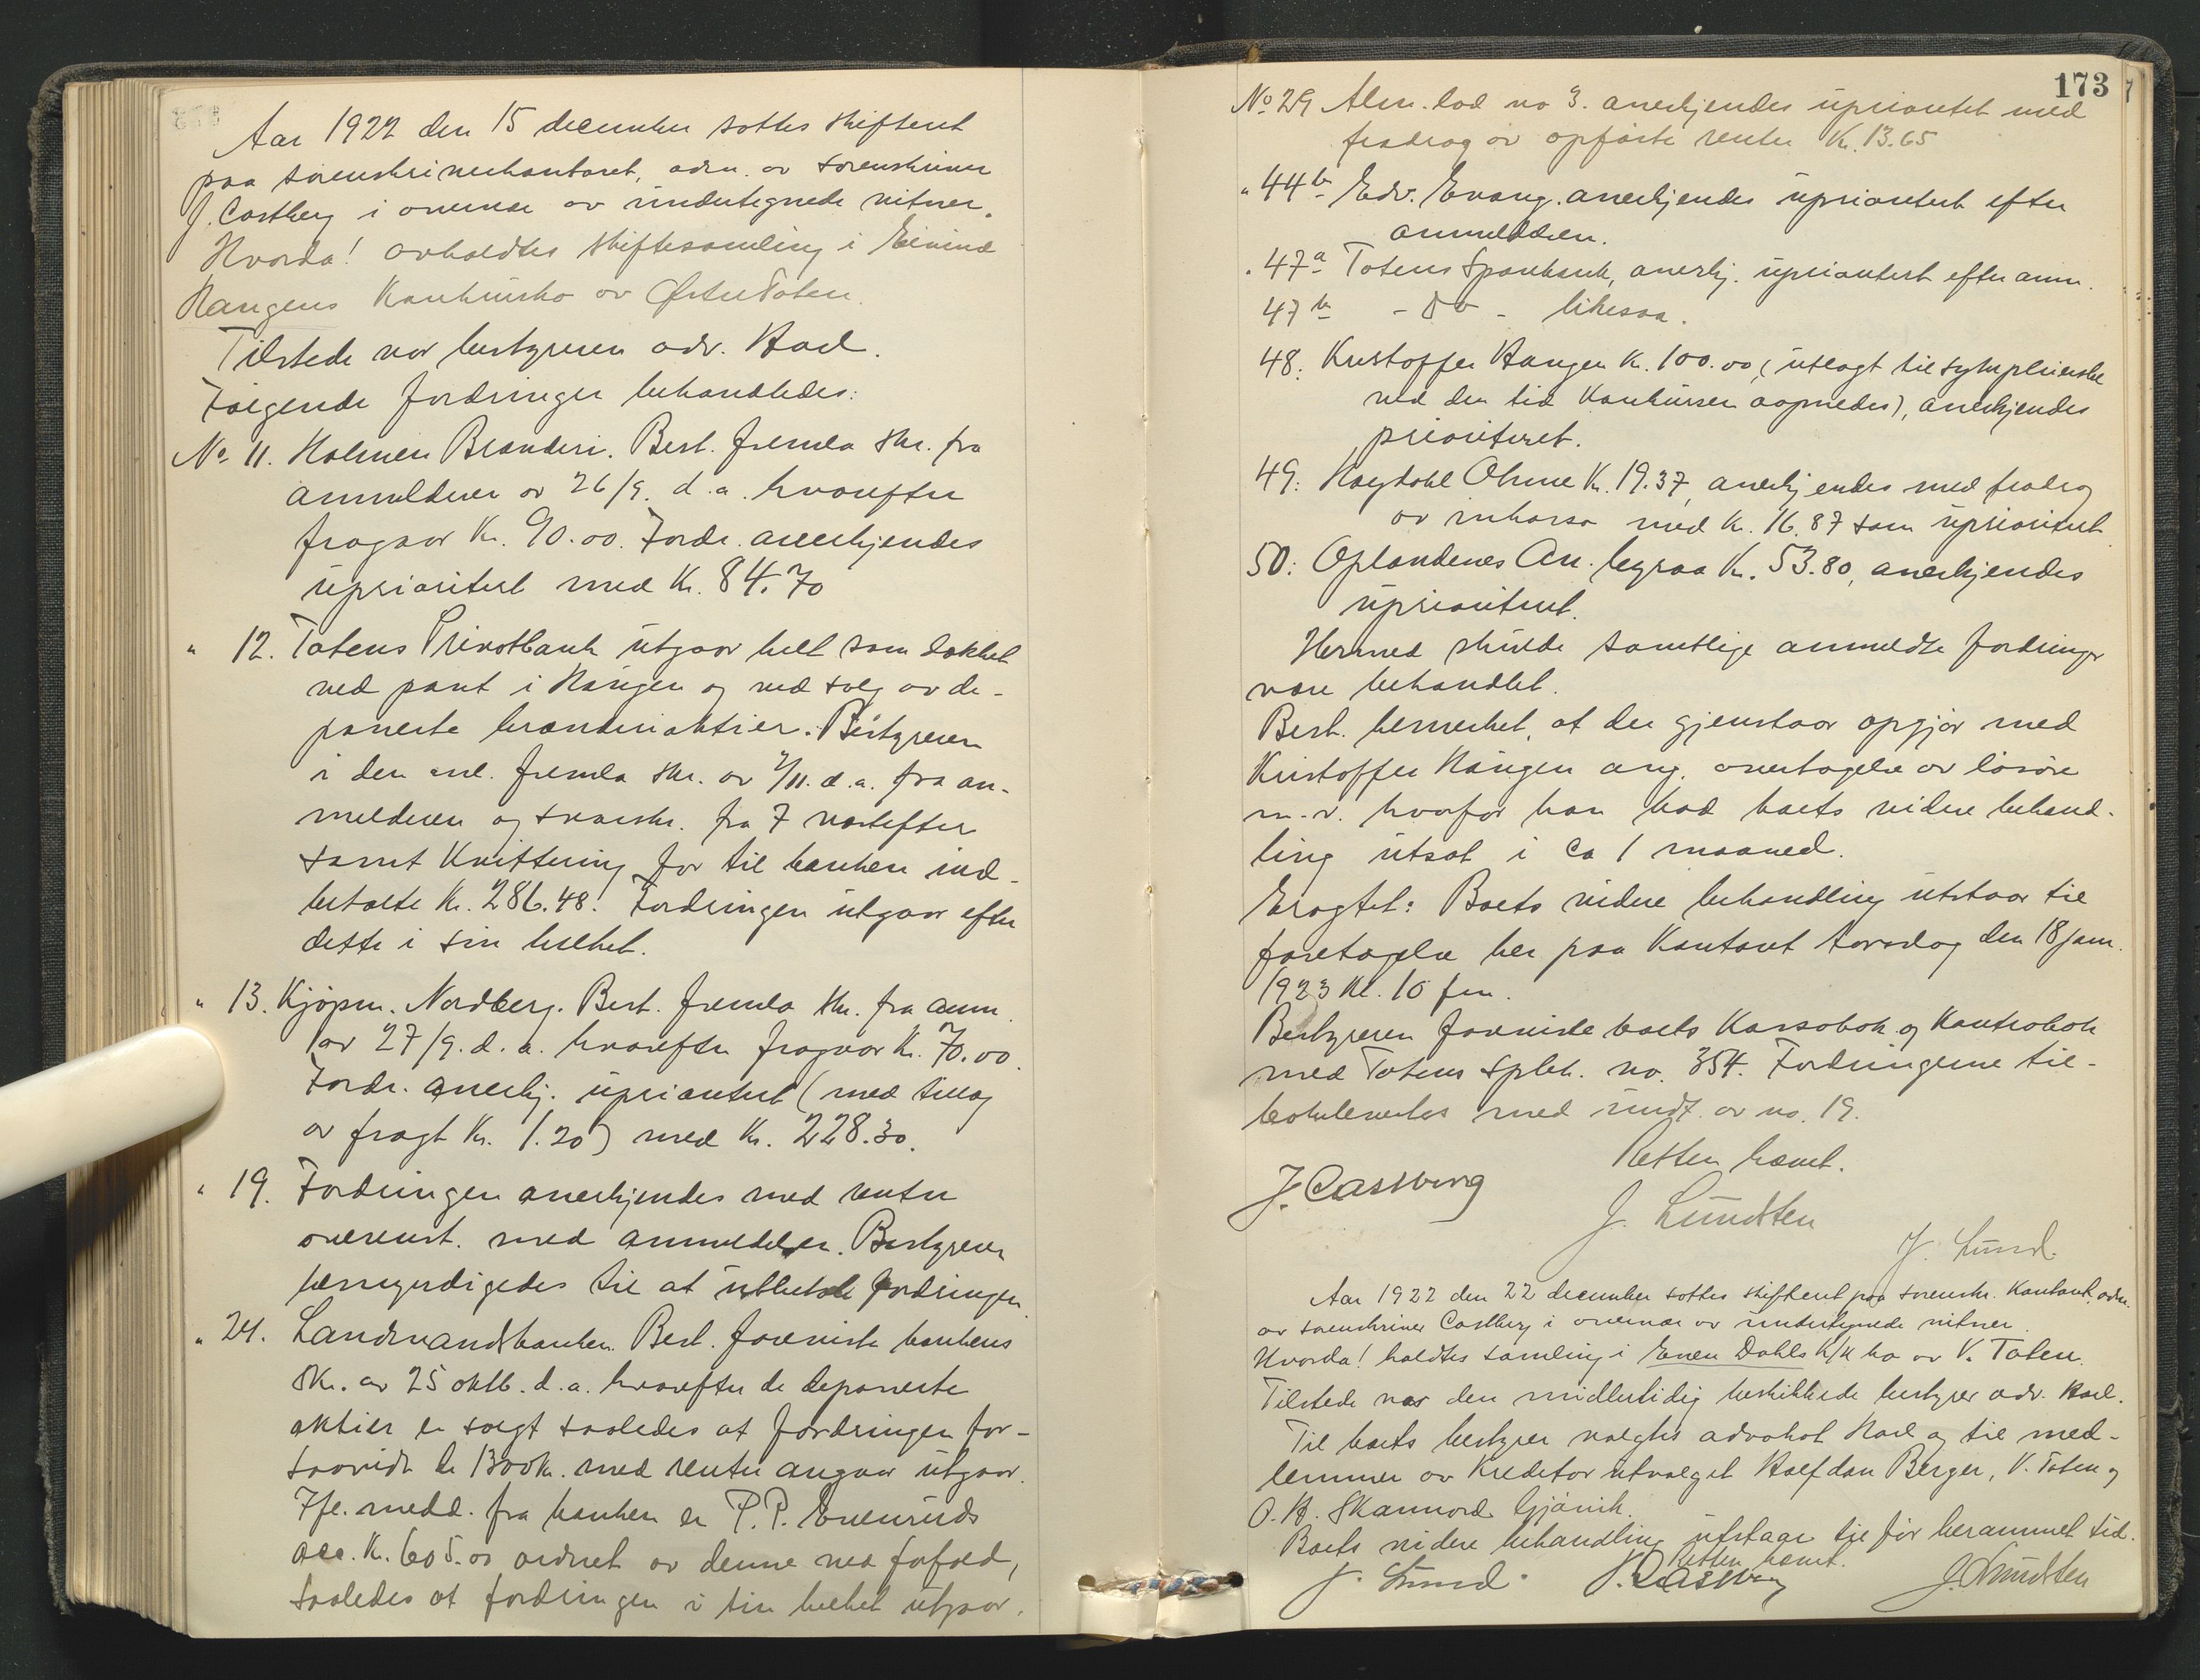 Aar 1922 den 15 december sattes skifteret
paa sorenskriverkontoret, adm. av sorenskriver
J. Castberg i overvær av undertegnede vitner.
Hvorda! avholdtes skiftesamling i Eivind
Haugens konkursbo av Østre Toten.
Tilstede var bestyreren adv. Hoel.
Følgende fordringer behandledes:
No 11. Holmen Brænderi. Best. fremla skr. fra
anmelderen av 26/9. d.a. hvorefter
fragaar Kr. 90.00. Fordr. anerkjendes
uprioritert med Kr. 84.70
" 12. Totens Privatbank utgaar helt som dækket
ved pant i Haugen og ved salg av de-
ponerte brænderiaktier. Bestyreren
i den anl. fremla skr. av 2/11. d.a. fra an-
melderen og svarskr. fra 7 næstefter
samt kvittering for til banken ind-
betalte Kr. 286.48. Fordringen utgaar efter
dette i sin helhet.
" 13. Kjøpm. Nordberg. Best. fremla skr. fra anm.
av 27/9. d.a. hvorefter fragaar Kr. 70.00.
Fordr. anerkj. uprioritert (med tillæg
av fragt Kr. 1.20) med Kr. 228.30.
" 19. Fordringen anerkjendes med renter
overenst. med anmeldelsen. Bestyreren
bemyndigedes til at utbetale fordringen.
" 24. Landmandsbanken. Best. foreviste bankens
skr. av 25 oktb. d.a. hvorefter de deponerte
aktier er solgt saaledes at fordringen for-
saavidt de 1300 kr. med renter angaar utgaar.
Ifl. medd. fra banken er P.P. Evenruds
acc. Kr. 605.00 ordnet av denne ved forfald,
saaledes at fordringen i sin helhet utgaar.
173
No 29 Alm. lad no 3. anerkjendes uprioritet med
fradrag av opførte renter Kr. 13.65
" 44b Edv. Evang. anerkjendes uprioritert efter
anmeldelsen.
" 47a Totens Sparebank, anerkj. uprioritert efter anm.
47b - do - likesaa.
48: Kristoffer Haugen Kr. 100.00 (utlagt til sykepleierske
ved den tid konkursen aapnedes), anerkjendes
prioriteret.
49: Høydahl Ohme Kr. 19.37, anerkjendes med fradrag
av inkasso med Kr. 16.87 som uprioritert
50: Oplandenes An. byraa Kr. 53.80, anerkjendes
uprioritert.
Hermed skulde samtlige anmeldte fordringer
være behandlet.
Best. bemerket, at der gjenstaar opgjør med
Kristoffer Haugen ang. overtagelse av løsøre
m.v. hvorfor han bad boets videre behand-
ling utsat i ca 1 maaned.
Eragtet: Boets videre behandling utstaar til
foretagelse her paa kontoret torsdag den 18 jan.
1923 Kl. 10 fm.
Bestyreren foreviste boets kassabok og kontrabok
med Totens Spbk. no. 354. Fordringerne til-
bakeleveres med undt. av no. 19.
Retten hævet.
J. Castberg
J. Lundsten
J. Lund.
Aar 1922 den 22 december sattes skifteret paa sorenskr. kontoret, adm.
av sorenskriver Castberg i overvær av undertegnede vitner.
Hvorda! holdtes samling i Even Dahls k/k bo av V. Toten.
Tilstede var den midlertidig beskikkede bestyrer adv. Hoel.
Til boets bestyrer valgtes advokat Hoel og til med-
lemmer av kreditorutvalget Halfdan Berger, V. Toten og
O.H. Skannord Gjøvik.
Boets videre behandling utstaar til før berammet tid.
Retten hævet.
J. Lund. J. Castberg J. Lundsten